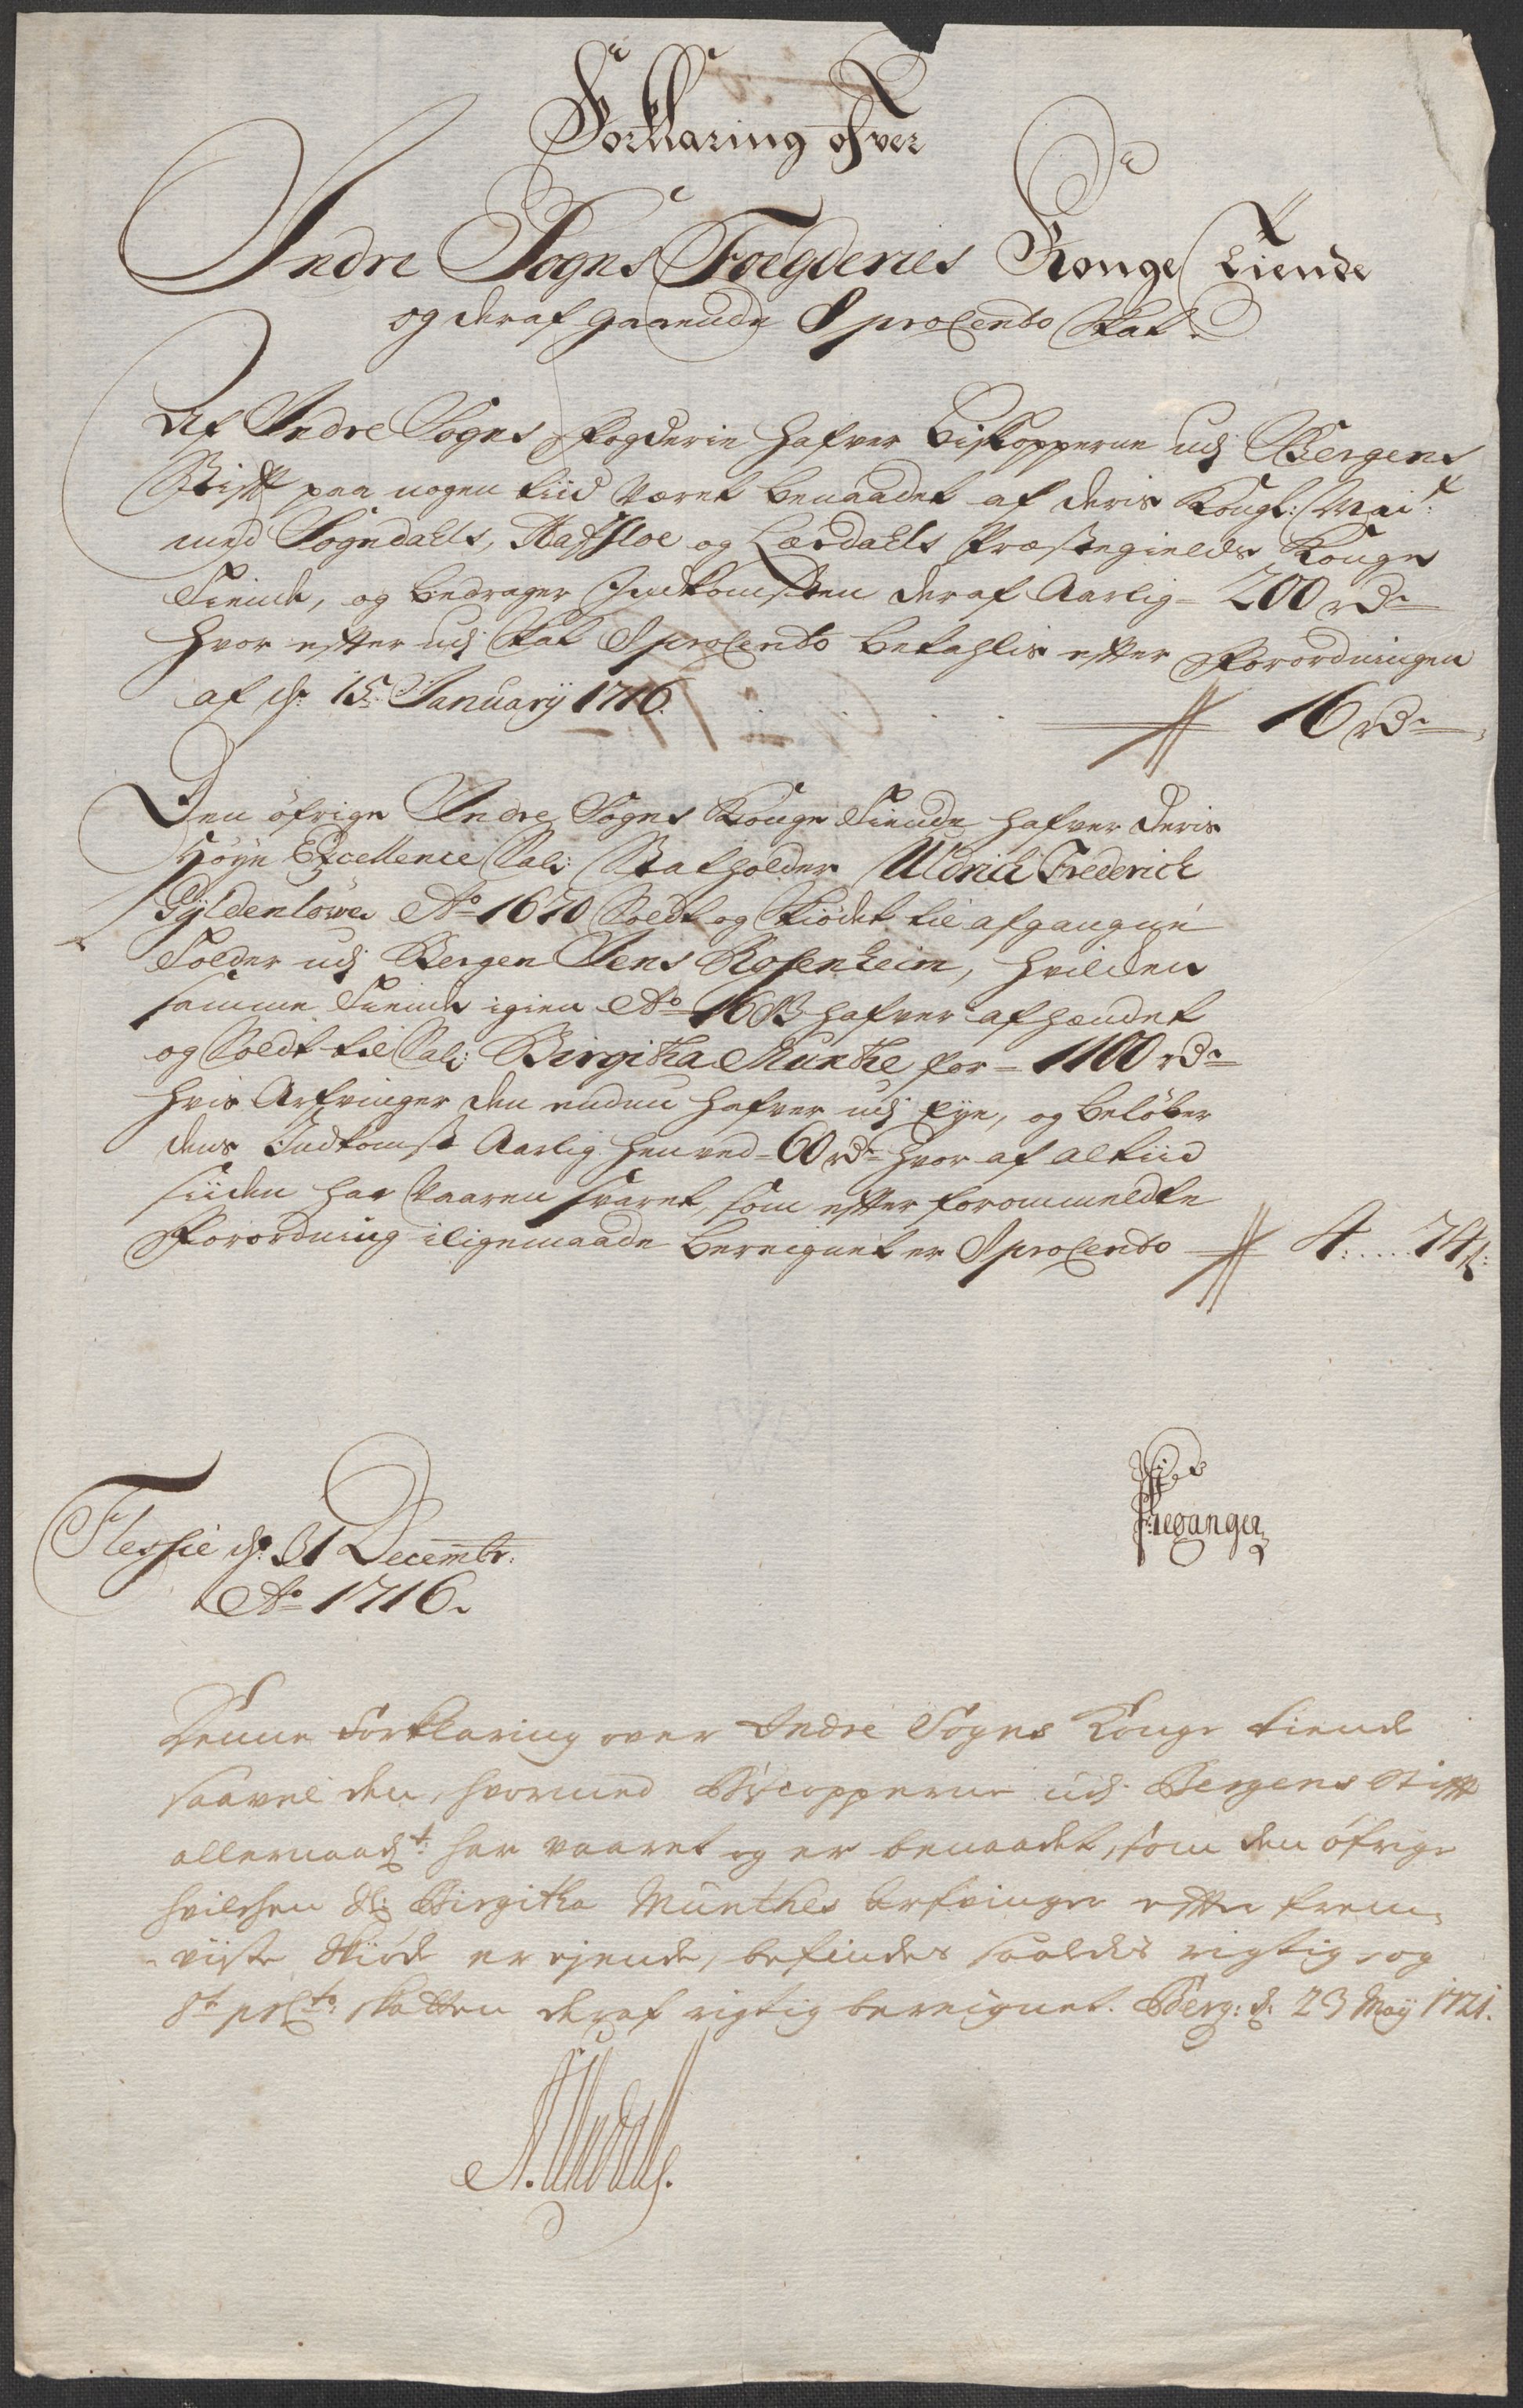 Forklaring ofver
Indre Sogns Foegderies Konge Tiende
og deraf gaaende 8 procento Skat.
Af Indre Sogns Fogderie hafver Biskopperne udj Bergens
Stift paa nogen tiid været benaadet af deris Kongl: Mai:t
med Sogndahls, Hafsloe og Lærdahls Præstegields Konge
Tiende, og bedrager Indkomsten deraf Aarlig = 200 rdr
hvor efter udj Skat 8 procento betahlis efter Forordningen
af d: 15 Januarij 1716. . . . 16 rdr
Den öfrige Indre Sogns Konge Tiende hafver deris
Höye Excellence Sal: Statholder Uldrich Frederich
Gyldenlöwe Ao 1670 Soldt og Skiödet til afgangne
Tolder udj Bergen Jens Rosenheim, hvilcken
samme Tiende igien Ao 1683 hafver afhændet
og Soldt til Sal: Birgitha Munthe for = 1100 rdr
hvis Arfvinger den endnu hafver udj Eye, og belöber
dens Indkomst Aarlig henved = 60 rdr hvor af altiid
siiden har vaaren svaret, som efter forommeldte
Forordning iligemaade bereignet er 8 procento 4: .... 74 s:
Flessie d: 31 Decembr:
Ao 1716.
Denne Forklaring over Indre Sogns Konge tiende
saavel den, hvormed Biscopperne udj Bergens Stift
allernaadst: har vaaret og er benaadet, som den öfrige
hvilchen Sl: Birgitha Münthes Arfvinger efter frem-
viiste Skiöde er ejende, befindes saaledes rigtig, og
8te prCto: skatten deraf rigtig bereignet. Berg: d: 23 Maij 1721.